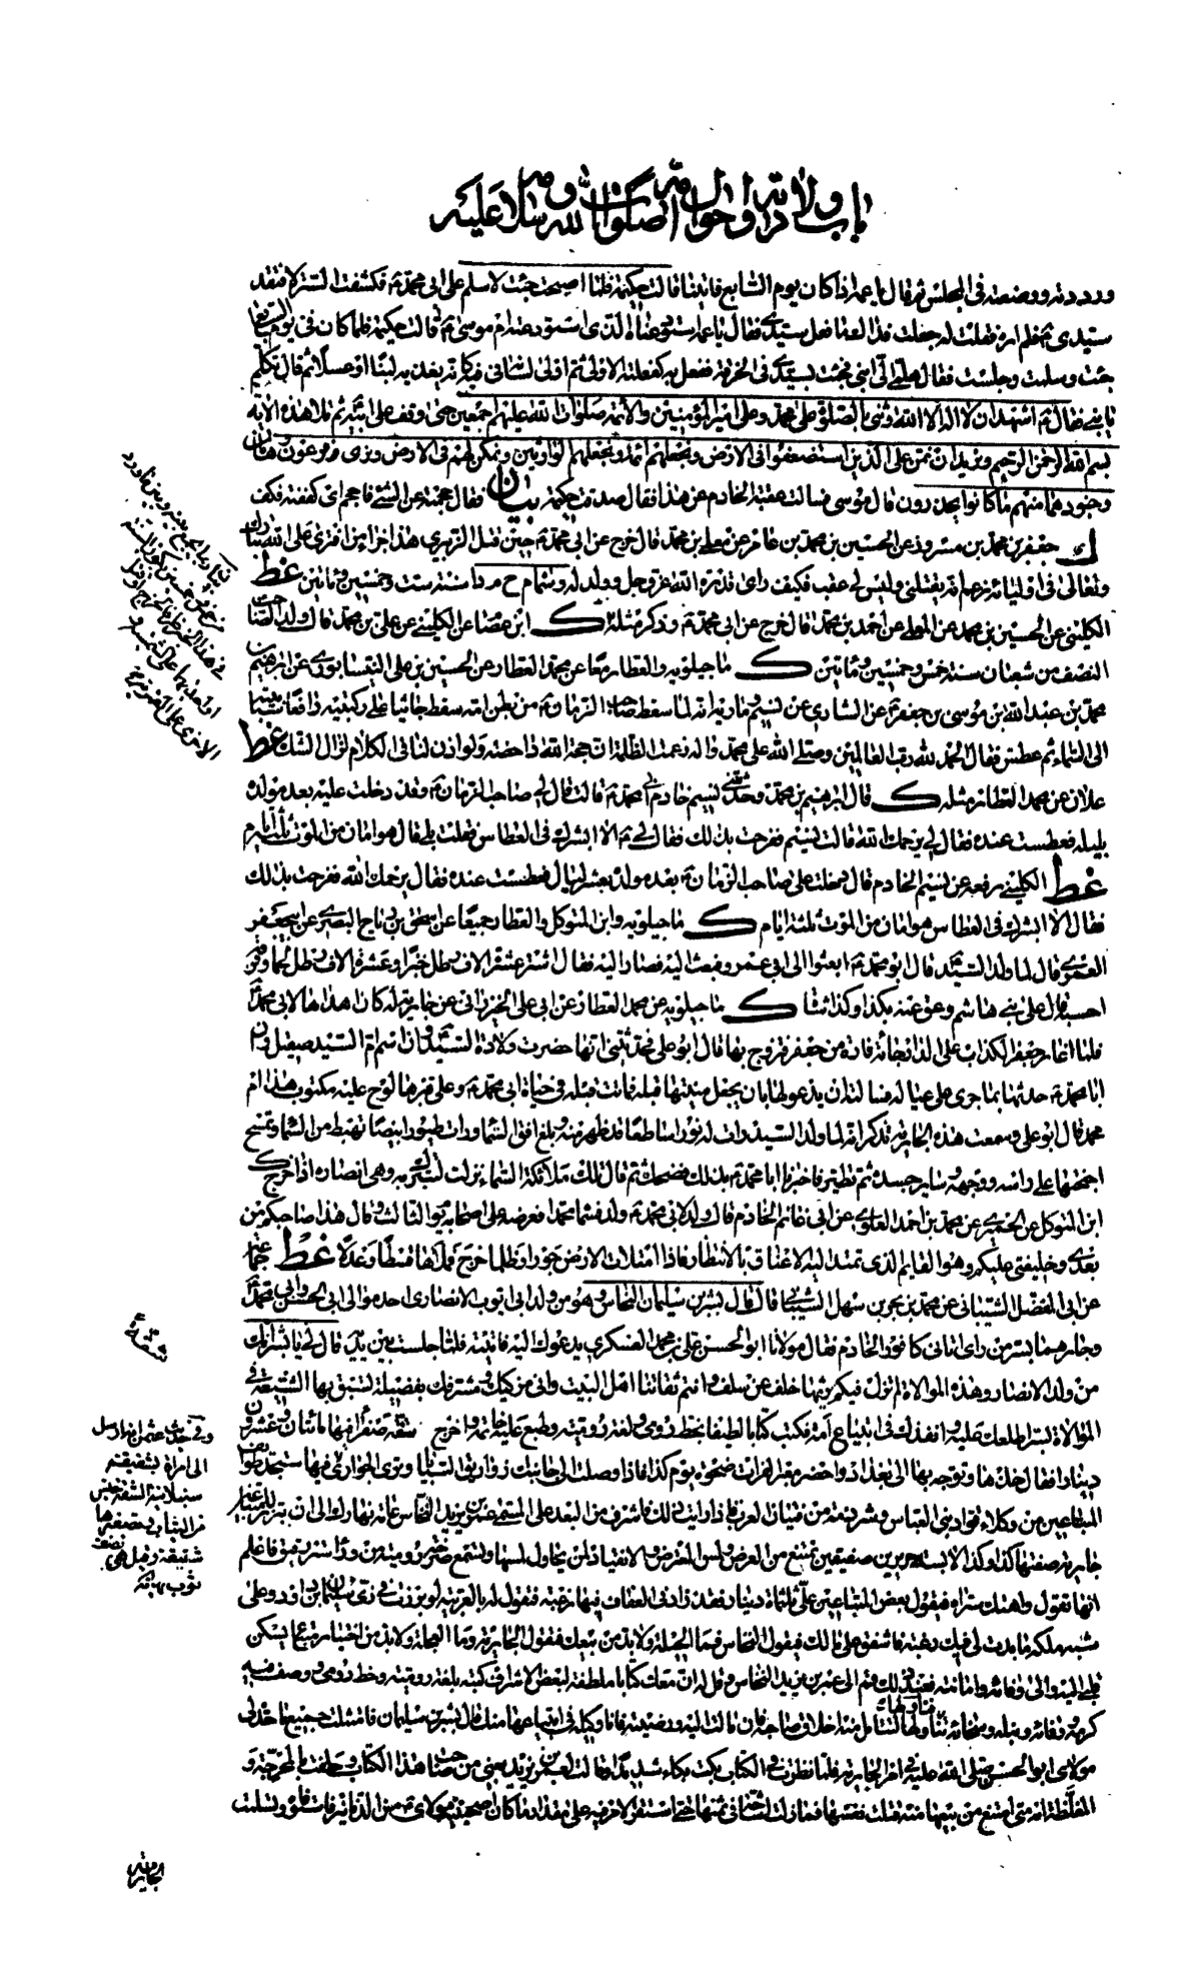 باب ولادته واحوال امه صلوات الله وسلامه عليه
ورددته ووضعته في المجلس ثم قال يا عمة اذا كان يوم السابع فايتينا قالت حكيمة فلما اصبحت جئت لاسلم على ابي محمد ع فكشفت الستر لافتقد
سيدي ع فلم اره فقلت له جعلت فداك ما فعل سيدي فقال يا عمة استودعناه الذي استودعته ام موسى ع قالت حكيمة فلما كان في يوم السابع
جئت وسلمت وجلست فقال هلمي الي ابني فجئت بسيدي في الخرقة ففعل به كفعلته الاولى ثم ادلى لسانه في فيه كانه يغذيه لبنا او عسلا ثم قال تكلم
يا بني فقال ع اشهد ان لا اله الا الله وثنى بالصلوة على محمد وعلى امير المؤمنين والائمة صلوات الله عليهم اجمعين حتى وقف على ابيه ثم تلا هذه الاية
بسم الله الرحمن الرحيم ونريد ان نمن على الذين استضعفوا في الارض ونجعلهم ائمة ونجعلهم الوارثين ونمكن لهم في الارض ونرى فرعون وهامان
وجنودهما منهم ما كانوا يحذرون قال موسى فسالت عقبة الخادم عن هذا فقال صدقت حكيمة بيان فقال حجمته عن الشيء فاحجم اي كففته فكف
ك جعفر بن محمد بن مسرور عن الحسين بن محمد بن عامر عن معلى بن محمد قال خرج عن ابي محمد ع حين قتل الزبيري هذا جزاء من افترى على الله تبارك
وتعالى في اوليائه زعم انه يقتلني وليس لي عقب فكيف راى قدرة الله عز وجل وولد له وسماه م ح م د سنة ست وخمسين ومائتين غط
الكليني عن الحسين بن محمد عن المعلى عن احمد بن محمد قال خرج عن ابي محمد ع وذكر مثله ك ابن عصام عن الكليني عن علي بن محمد قال ولد الصاحب
النصف من شعبان سنة خمس وخمسين ومائتين ك ماجيلويه والعطار معا عن محمد العطار عن الحسين بن علي النيسابوري عن ابرهيم بن
محمد بن عبد الله بن موسى بن جعفر ع عن الشاري عن نسيم ومارية انه لما سقط صاحب الزمان ع من بطن امه سقط جاثيا على ركبتيه رافعا سبابتيه
الى السماء ثم عطس فقال الحمد لله رب العالمين وصلى الله على محمد واله زعمت الظلمة ان حجة الله داحضة ولو اذن لنا في الكلام لزال الشك غط
علان عن محمد العطار مثله ك قال ابرهيم بن محمد وحدثتني نسيم خادم ابي محمد ع قالت قال لي صاحب الزمان ع وقد دخلت عليه بعد مولده
بليلة فعطست عنده فقال لي يرحمك الله قالت نسيم ففرحت بذلك فقال لي ع الا ابشرك في العطاس فقلت بلى قال هو امان من الموت ثلثة ايام
غط الكليني رفعه عن نسيم الخادم قال دخلت على صاحب الزمان ع بعد مولده بعشر ليال فعطست عنده فقال يرحمك الله ففرحت بذلك
فقال الا ابشرك في العطاس هو امان من الموت ثلثة ايام ك ماجيلويه وابن المتوكل والعطار جميعا عن اسحق بن رياح البصري عن ابي جعفر
العمري قال لما ولد السيد ع قال ابو محمد ع ابعثوا الى ابي عمرو فبعث اليه فصار اليه فقال اشتر عشرة الاف رطل خبزا وعشرة الاف رطل لحما وفرقه
احسبه قال على بني هاشم وعق عنه بكذا وكذا شاة ك ماجيلويه عن محمد العطار عن ابي علي الخيزراني عن جارية له كان اهداها لابي محمد ع
فلما اغار جعفر الكذاب على الدار جاءته فارة من جعفر فتزوج بها قال ابو علي فحدثتني انها حضرت ولادة السيد ع وان اسم ام السيد صيقل وان
ابا محمد ع حدثها بما جرى على عياله فسالته ان يدعو لها بان يجعل منيتها قبله فماتت قبله في حياة ابي محمد ع وعلى قبرها لوح عليه مكتوب هذا ام
محمد قال ابو علي وسمعت هذه الجارية تذكر انه لما ولد السيد رات له نورا ساطعا قد ظهر منه وبلغ افق السماء ورات طيورا بيضا تهبط من السماء وتمسح
اجنحتها على راسه ووجهه وسائر جسده ثم تطير فاخبرنا ابا محمد ع بذلك فضحك ثم قال تلك ملائكة السماء نزلت لتتبرك به وهي انصاره اذا خرج ك
ابن المتوكل عن الحميري عن محمد بن احمد العلوي عن ابي غانم الخادم قال ولد لابي محمد ع ولد فسماه محمدا فعرضه على اصحابه يوم الثالث وقال هذا صاحبكم من
بعدي وخليفتي عليكم وهو القايم الذي تمتد اليه الاعناق بالانتظار فاذا امتلات الارض جورا وظلما خرج فملاها قسطا وعدلا غط جماعة
عن ابي المفضل الشيباني عن محمد بن بحر بن سهل الشيباني قال قال بشر بن سليمان النخاس وهو من ولد ابي ايوب الانصاري احد موالي ابي الحسن وابي محمد ع
وجارهما بسر من راى اتاني كافور الخادم فقال مولانا ابو الحسن علي بن محمد العسكري يدعوك اليه فاتيته فلما جلست بين يديه قال لي يا بشر انك
من ولد الانصار وهذه الموالاة لم تزل فيكم يرثها خلف عن سلف وانتم ثقاتنا اهل البيت واني مزكيك ومشرفك بفضيلة تسبق بها الشيعة في
الموالاة بسر اطلعك عليه وانفذك في ابتياع امة فكتب كتابا لطيفا بخط رومي ولغة رومية وطبع عليه خاتمه واخرج شقة صفراء فيها مائتان وعشرون
دينارا فقال خذها وتوجه بها الى بغداد واحضر معبر الفرات ضحوة يوم كذا فاذا وصلت الى جانبك زواريق السبايا وترى الجواري فيها ستجد طوائف
المبتاعين من وكلاء قواد بني العباس وشرذمة من فتيان العرب فاذا رايت ذلك فاشرف من البعد على المسمى عمر بن يزيد النخاس عامة نهارك الى ان تبرز للمبتاعين
جارية صفتها كذا وكذا لابسة حريرين صفيقين تمتنع من العرض ولمس المعترض والانقياد لمن يحاول لمسها وتسمع صرخة رومية من وراء ستر رقيق فاعلم
انها تقول واهتك ستراه فيقول بعض المبتاعين علي ثلثمائة دينار فقد زادني العفاف فيها رغبة فتقول له بالعربية لو برزت في زي سليمان بن داود وعلى
شبه ملكه ما بدت لي فيك رغبة فاشفق على مالك فيقول النخاس فما الحيلة ولا بد من بيعك فتقول الجارية وما العجلة ولا بد من اختيار مبتاع يسكن
قلبي اليه والى وفائه وامانته فعند ذلك قم الى عمر بن يزيد النخاس وقل له ان معك كتابا ملطفة لبعض الاشراف كتبه بلغة رومية وخط رومي ووصف فيه
كرمه ووفائه ونبله وسخائه تناولها لتتامل منه اخلاق صاحبه فان مالت اليه ورضيته فانا وكيله في ابتياعها منك قال بشر بن سليمان فامتثلت جميع ما حده لي
مولاي ابو الحسن صلى الله عليه في امر الجارية فلما نظرت في الكتاب بكت بكاء شديدا وقالت لعمر بن يزيد بعني من صاحب هذا الكتاب وحلفت بالمحرجة و
المغلظة انه متى امتنع من بيعها منه قتلت نفسها فما زلت اشاحه في ثمنها حتى استقر الامر فيه على مقدار ما كان اصحبنيه مولاي ع من الدنانير فاستوفاه وتسلمت
وفي حديث عثمان انه ارسل
الى امراة بشقيقة
سنبلانية الشقة جنس
من الثياب وتصغيرها
شقيقة وقيل هي نصف
ثوب نهاية
الجارية